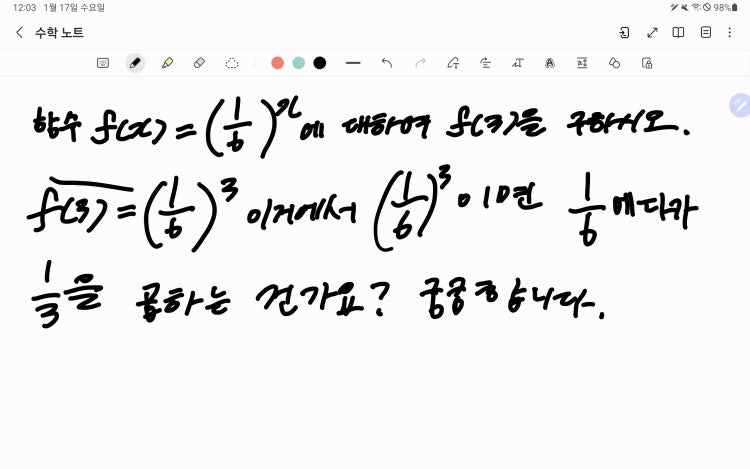 12:03 1월 17일 수요일
98%
수학 노트
함수 f(x) = (1/6)^x에 대하여 f(3)을 구하시오.
f(3) = (1/6)^3 이거에서 (1/6)^3 이면 1/6 에다가
1/3을 곱하는 건가요? 궁궁합니다.